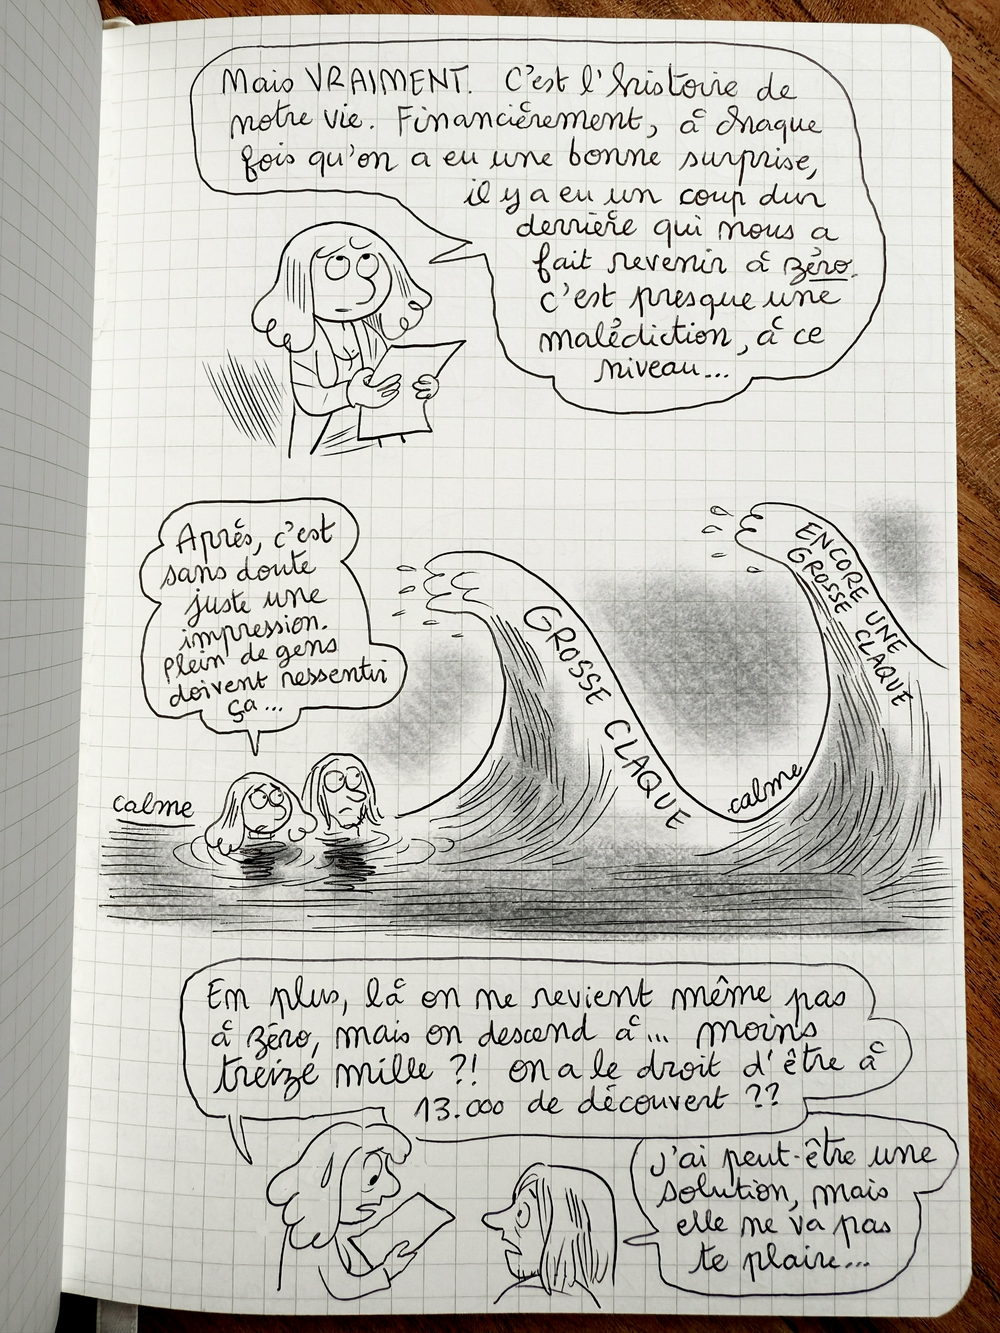 Mais VRAIMENT. C'est l'histoire de
notre vie. Financièrement, à chaque
fois qu'on a eu une bonne surprise,
il y a eu un coup dur
derrière qui nous a
fait revenir à zéro.
c'est presque une
malédiction, à ce
niveau...
Après, c'est
sans doute
juste une
impression.
Plein de gens
doivent ressentir
ça...
calme
GROSSE CLAQUE
calme
ENCORE UNE
GROSSE CLAQUE
En plus, là on ne revient même pas
à zéro, mais on descend à... moins
treize mille ?! on a le droit d'être à
13.000 de découvert ??
J'ai peut-être une
solution, mais
elle ne va pas
te plaire...